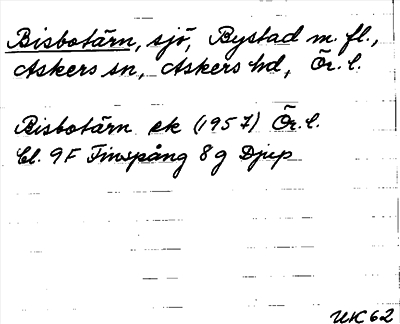 Bisbotärn, sjö, Bystad m. fl.,
Askers sn, Askers hd, Ör. l.
Bisbotärn ek (1957) Ör. l.
Bl. 9F Finspång 8g Djup
UK 62